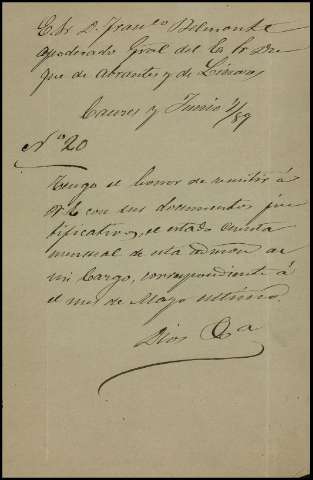 E. Sr. D. Franco. Belmonte
apoderado Gral del E. Sr Du
que de Abrantes y de Linares
Caceres y Junio 1/89
No. 20
Tengo el honor de remitir á
V. E. con sus documentos jus
tificativos, el estado cuenta
mensual de esta admon. de
mi Cargo, correspondiente á
el mes de Mayo ultimo.
Dios Ga